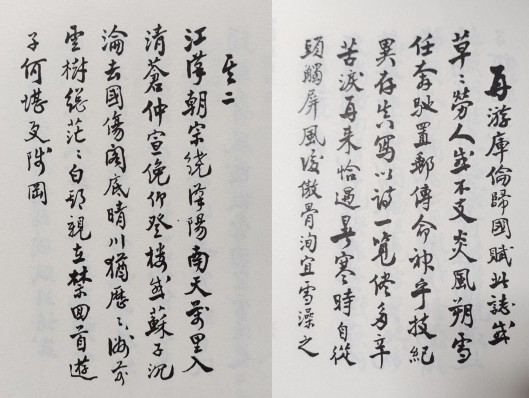 再游庫倫歸國賦此誌感
草〻勞人感不支炎風朔雪
任奔馳置郵傳命神乎技紀
異存真寫以詩一覽多辛
苦淚再來恰遇暑寒時自從
頭觸屏風後傲骨洵宜雪澡之
其二
江漢朝宗繞漢陽南天萬里入
清蒼仲宣俛仰登樓感蘇子沉
淪去國傷閣底晴川猶歷〻前
雲樹總茫〻白頭親在禁回首遊
子何堪更陟岡